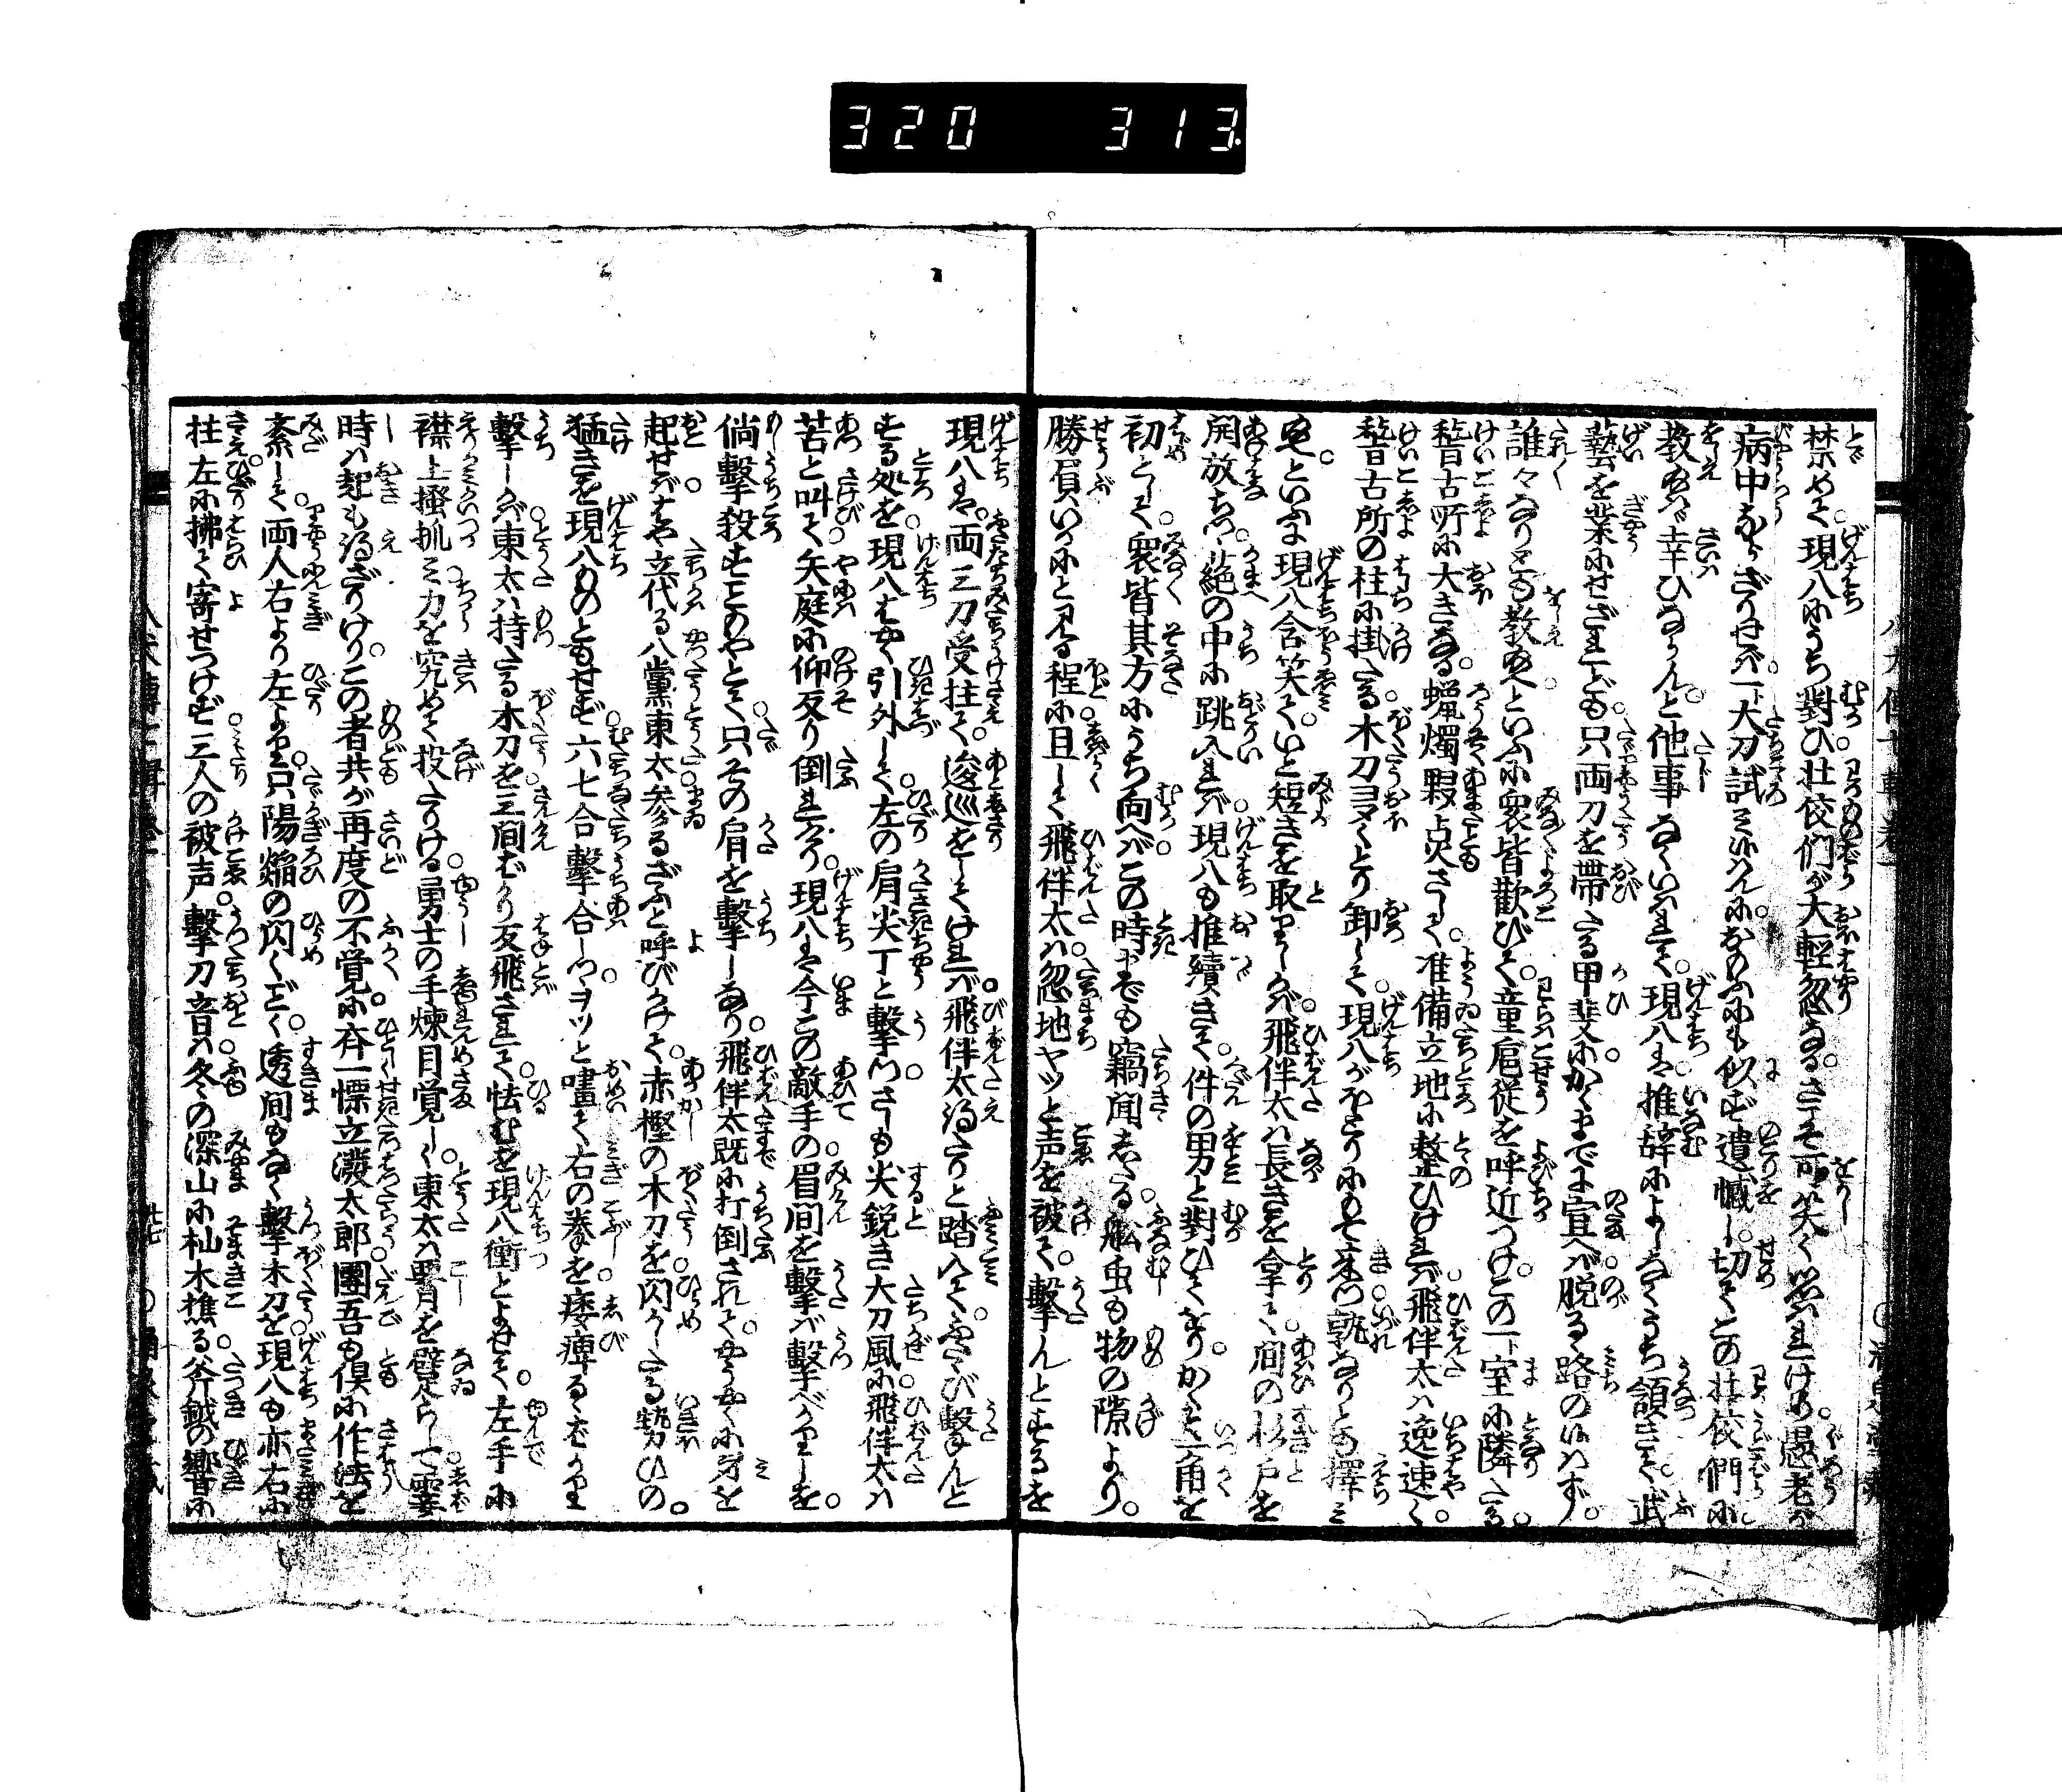 320 313.
禁めて現八にうち對ひ壮佼們が大軽忽なるさこそ可笑く思れけめ愚老が
病中ならざりせば一大刀試み候はんにおのふにも似ず遺憾し切てこの壮佼們に
教給はゞ幸ひならんと他事なくいはれて現八は推辞によしなくうち領きて武
藝を業にせざれども只両刀を帯たる甲斐にかくまでに宣へば脱るゝ路の候はず
誰々なりとも教給といふに衆皆歓びて童扈従を呼近つけこの一室に隣たる
稽古所に大きなる蝋燭夥点さして准備立地に整ひければ飛伴太は逸速く
稽古所の柱に掛たる木刀多くとり卸して現八がほとりにもて来つ孰なりとも擇み
給といふに現八含笑ていと短きを取りしかば飛伴太は長きを拿て間の杉戸を
開放ちつ葩の中に跳入れば現八も推續きて件の男と對ひてをりかくて一角を
初として衆皆其方にうち向へばこの時までも竊聞したる舩虫も物の隙より
勝負いかにと見る程に且して飛伴太は忽地ヤッと声を被て撃んとするを
現八は両三刀受拄て逡巡をしてければ飛伴太得たりと踏入て再び撃んと
する処を現八はやく引外して左の肩尖丁と撃つさしも尖鋭き大刀風に飛伴太は
苦と叫て矢庭に仰反り倒れけり現八は今この敵手の眉間を撃ば撃べかりしを
倘撃殺すこともやとて只その肩を撃しなり飛伴太既に打倒されてやうやくに身を
起せばはや立代る八黨東太参るざふと呼びかけて赤樫の木刀を閃かしたる勢ひの
猛きを現八ものともせず六七合撃合しつヲッと嚏て右の拳を痿痺るばかり
撃しかば東太は持たる木刀を三間ばかり反飛されて怯むを現八衝とよせて左手に
襟上掻抓み力を究めて投たりける勇士の手煉目覚しく東太は腰を躄らして霎
時は起も得ざりけりこの者共が再度の不覚に斉一慓立溌太郎團吾も倶に作法を
紊して両人右より左より只陽焔の閃くごとく透間もなく撃木刀を現八も亦右に
拄左に拂て寄せつけず三人の被声撃刀音は冬の深山に杣木樵る斧鉞の響に